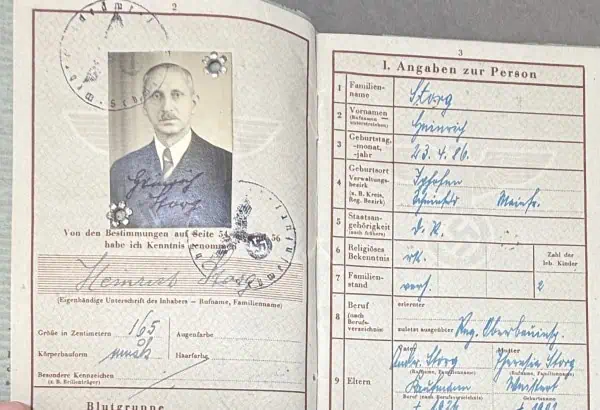 2
Von den Bestimmungen auf Seite 54 56
habe ich Kenntnis genommen
Heinrich Storg
(Eigenhändige Unterschrift des Inhabers — Rufname, Familienname)
Größe in Zentimetern 165
Augenfarbe
Körperbauform
Haarfarbe
Besondere Kennzeichen
(z. B. Brillenträger)
Blutgruppe
3
I. Angaben zur Person
1 Familien-
name Storg
2 Vornamen
(Rufnamen
unterstreichen) Heinrich
3 Geburtstag,
-monat,
-jahr 23. 4. 86.
4 Geburtsort
Verwaltungs-
bezirk
(z. B. Kreis,
Reg. Bezirk) Iphofen
Mainfr.
5 Staatsan-
gehörigkeit
(auch frühere) D. R.
6 Religiöses
Bekenntnis rk.
Zahl der
leb. Kinder
7 Familien-
stand verh. 2
8 Beruf
(nach
Berufs-
verzeichnis)
erlernter
zuletzt ausgeübter Reg. Oberbauinsp.
9 Eltern
Vater
Mutter
Andr. Storg
Theresia Storg
(Rufname, Familienname)
(Rufname, Familienname)
Kaufmann
Beruf (nach Berufsverzeichnis)
Geburtsname